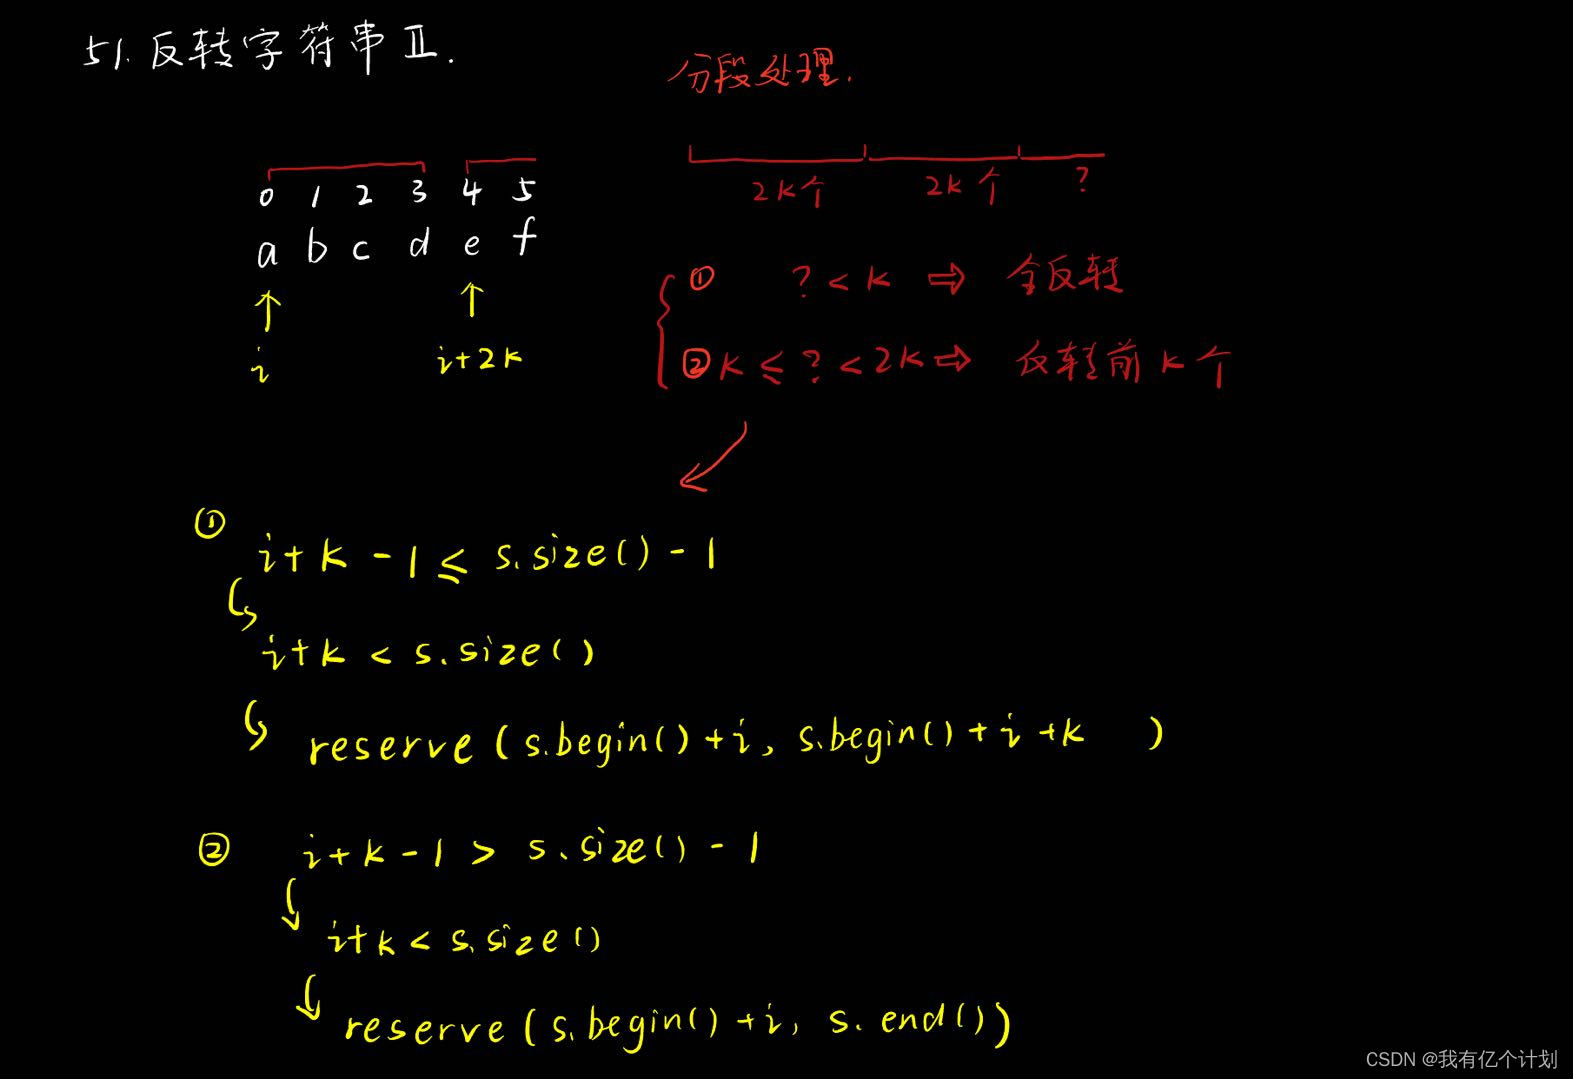 51. 反转字符串 II.
分段处理.
0 1 2 3 4 5
a b c d e f
i
i+2k
2k个 2k个 ?
① ? < k ⇒ 全反转
② k ≤ ? < 2k ⇒ 反转前 k 个
①
i+k-1 ≤ s.size()-1
i+k < s.size()
reserve(s.begin()+i, s.begin()+i+k )
②
i+k-1 > s.size()-1
i+k < s.size()
reserve(s.begin()+i, s.end())
CSDN @我有亿个计划